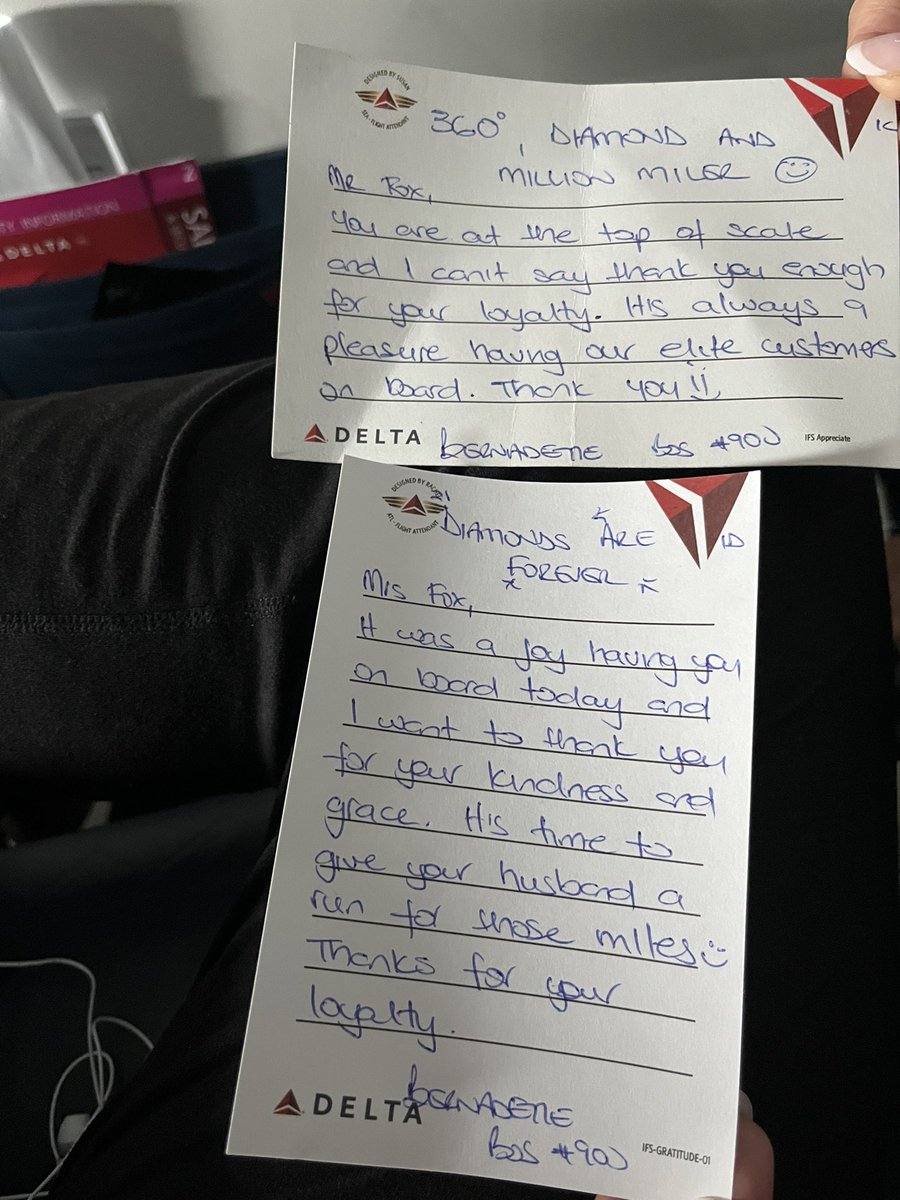 DESIGNED BY SUSAN
SEA - FLIGHT ATTENDANT
1C
360°, DIAMOND AND
MILLION MILER
Mr Fox,
You are at the top of scale
and I can't say thank you enough
for your loyalty. It's always a
pleasure having our elite customers
on board. Thank you!!
DELTA
BERNADETTE BOS #900
IFS Appreciate
TY INFORMATION
DELTA
DESIGNED BY
ATL - FLIGHT ATTENDANT
1D
DIAMONDS ARE
FOREVER
Mrs Fox,
It was a joy having you
on board today and
I want to thank you
for your kindness and
grace. It's time to
give your husband a
run for those miles
Thanks for your
loyalty.
DELTA
BERNADETTE
BOS #900
IFS-GRATITUDE-01